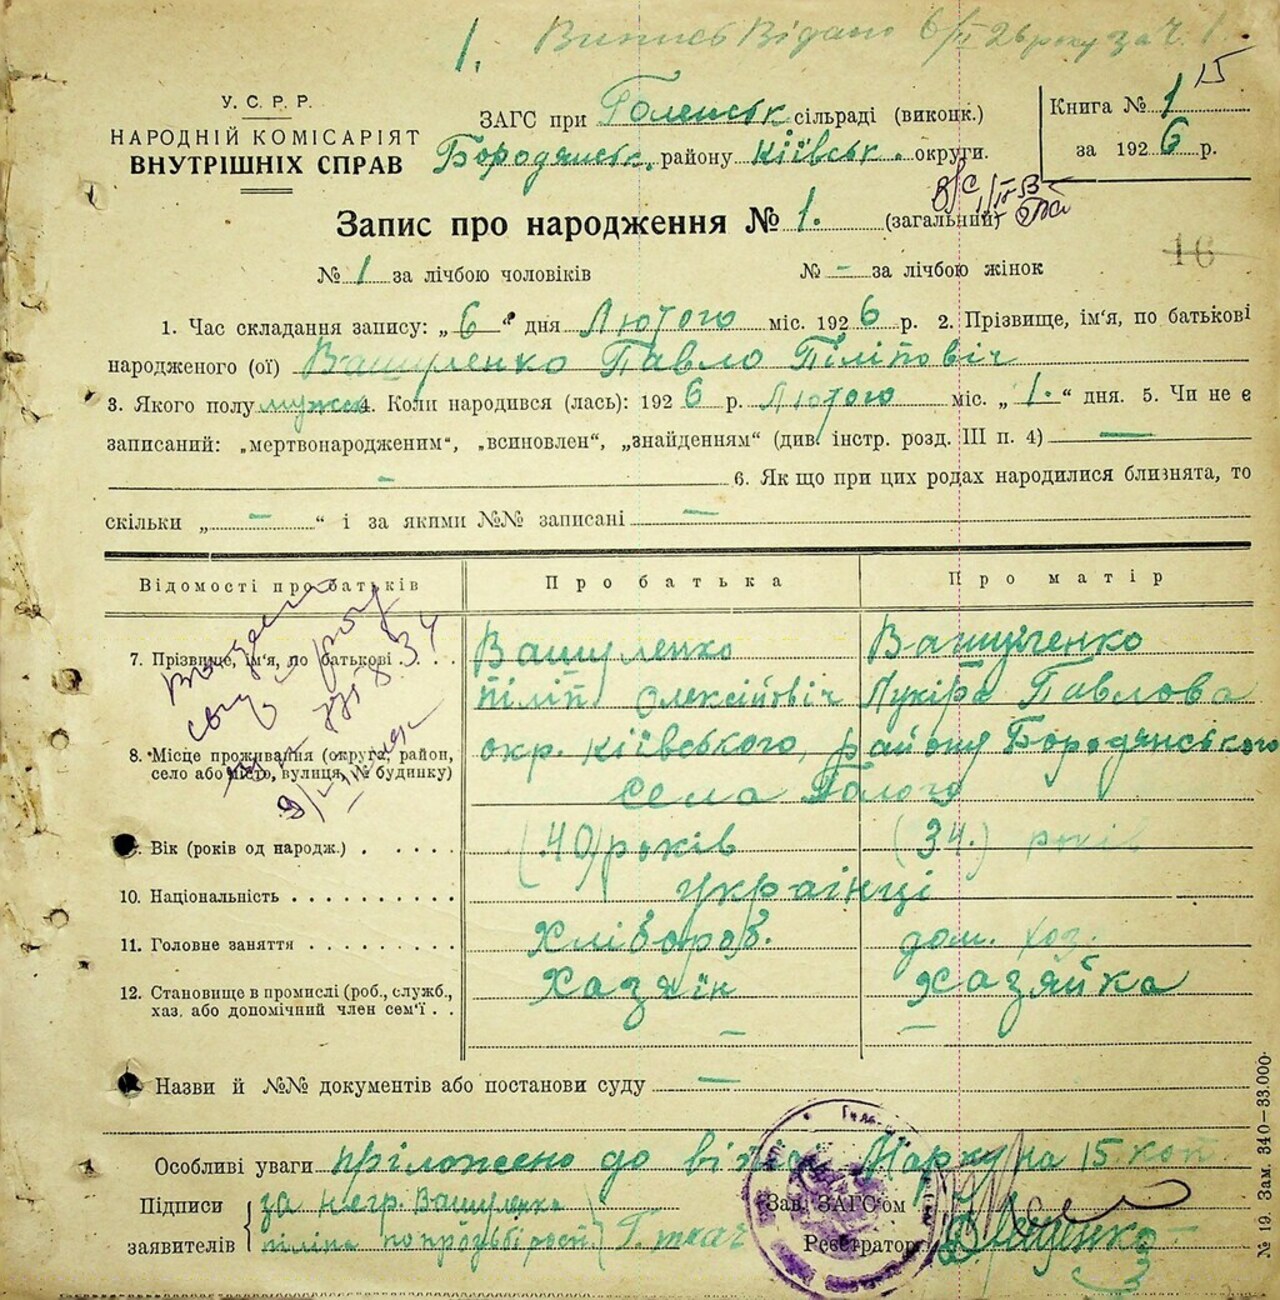 1. Випись Відано 6/II 26 року за ч. 1.
15
У. С. Р. Р.
НАРОДНІЙ КОМІСАРІЯТ
ВНУТРІШНІХ СПРАВ
ЗАГС при Голенськ сільраді (виконк.)
Бородянськ. району Київськ. округи.
Книга № 1
за 1926 р.
Запис про народження № 1. (загальний)
№ 1 за лічбою чоловіків № - за лічбою жінок
16
1. Час складання запису: „6“ дня Лютого міс. 1926 р. 2. Прізвище, ім'я, по батькові
народженого (ої) Вашуленко Павло Піліповіч
3. Якого полу мужск 4. Коли народився (лась): 1926 р. Лютого міс. „1.“ дня. 5. Чи не є
записаний: „мертвонародженим“, „всиновлен“, „знайденням“ (див. інстр. розд. III п. 4) —
- 6. Як що при цих родах народилися близнята, то
скільки „ — “ і за якими №№ записані —
Відомості про батьків Про батька Про матір
7. Прізвище, ім'я, по батькові . . . . Вашуленко Вашуленко
Піліп Олексійовіч Лукіра Павлова
8. Місце проживання (округа, район, окр. Київського, району Бородянського
село або місто, вулиця, № будинку) села Галого
9. Вік (років од народж.) . . . . . (40) років (34.) років
10. Національність . . . . . . . . . . українці
11. Головне заняття . . . . . . . . . Хлібороб. дом. хоз.
12. Становище в промислі (роб., служб., Хазяїн Хазяйка
хаз. або допомічний член сем'ї . . — —
Назви й №№ документів або постанови суду —
Особливі уваги пріложено до Марку на 15 коп
Підписи за негр. Вашуленка
заявителів Піліпа по прозьбі росп. Г. Ткач
Зав. ЗАГС'ом
Реєстратор
№ 19. Зам. 340—33.000.